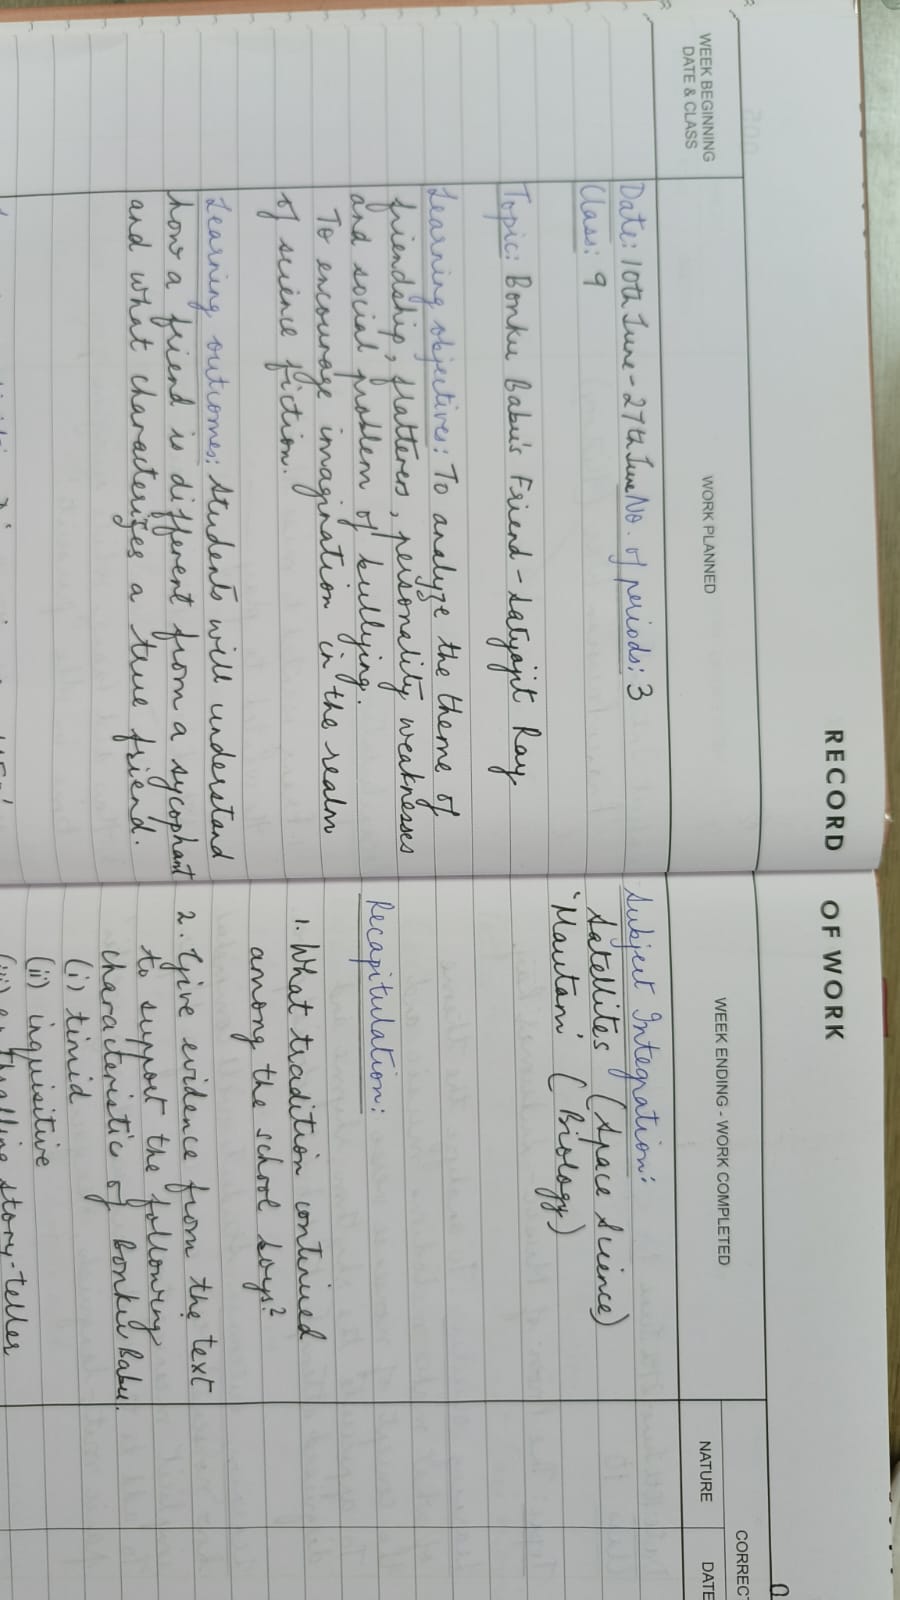 RECORD OF WORK
WEEK BEGINNING
DATE & CLASS
WORK PLANNED
Date: 10th June - 27th June No. of periods: 3
Class: 9
Topic: Bonku Babu's Friend - Satyajit Ray
Learning objectives: To analyze the theme of
friendship, flatterers, personality weaknesses
and social problem of bullying.
To encourage imagination in the realm
of science fiction.
Learning outcomes: Students will understand
how a friend is different from a sycophant
and what characterizes a true friend.
WEEK ENDING - WORK COMPLETED
NATURE
DATE
Subject Integration:
Satellites (Space Science)
'Mautam' (Biology)
Recapitulation:
1. What tradition continued
among the school boys?
2. Give evidence from the text
to support the following
characteristic of Bonku Babu.
(i) timid
(ii) inquisitive
story-teller